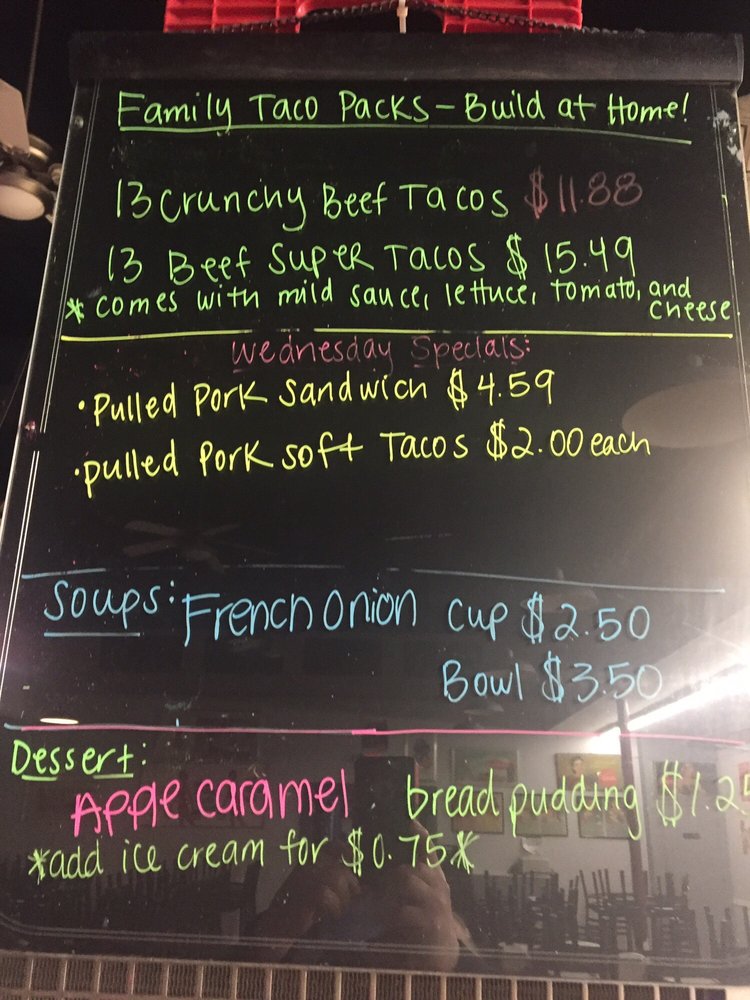 Family Taco Packs - Build at Home!
13 Crunchy Beef Tacos $11.88
13 Beef Super Tacos $15.49
* comes with mild sauce, lettuce, tomato, and
cheese
Wednesday Specials:
• Pulled Pork Sandwich $4.59
• pulled Pork soft Tacos $2.00 each
Soups: French Onion Cup $2.50
Bowl $3.50
Dessert:
Apple caramel bread pudding $1.25
*add ice cream for $0.75*